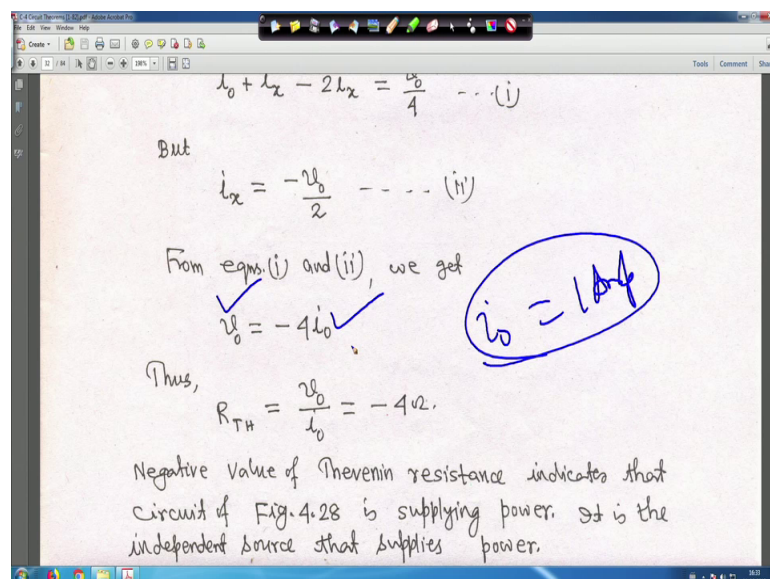 C-4 Circuit Theorems [1-82].pdf - Adobe Acrobat Pro
File Edit View Window Help
Create
32 / 84 198% Tools Comment
i₀ + iₓ − 2iₓ = v₀/4 ---(i)
But
iₓ = −v₀/2 ----- (ii)
From eqns.(i) and (ii), we get
v₀ = −4i₀
i₀ = 1 Amp
Thus,
R_TH = v₀/i₀ = −4Ω.
Negative value of Thevenin resistance indicates that
circuit of Fig.4.28 is supplying power. It is the
independent source that supplies power.
16:33